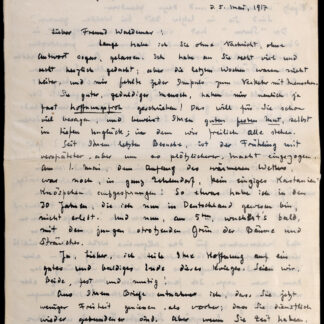 d. 5. Mai, 1917
Lieber Freund Waldemar!
Lange habe ich Sie ohne Nachricht, ohne
Antwort sogar, gelassen. Ich habe an Sie recht viel und
recht herzlich gedacht; aber die letzten Wochen waren nicht
leiter, und es fehlt jeder Impuls zum Verkehr mit Menschen.
Sie guter, geduldiger Mensch, haben mir neulich ja
fast hoffnungsfroh geschrieben! Das will für Sie schon
viel besagen, und beweist Ihren guten festen Mut, selbst
in tiefem Unglück; in dem wir freilich alle stehen.
Seit Ihrem letzten Besuche, ist der Frühling mit
verspäteter, aber um so plötzlicherer, Macht eingezogen.
Am 1. Mai, dem Anfang des wärmeren Wetters,
war noch, in ganz Zehlendorf, kein einziges Kastanien-
Knöspchen aufgesprungen! So etwas habe ich in den
30 Jahren, die ich nun in Deutschland gewesen bin,
nicht erlebt. Und nun, am 5ten, wuchtet's bald,
mit dem jungen strotzenden Grün der Bäume und
Sträucher.
Ja, Lieber, ich teile Ihre Hoffnung auf ein
gutes und baldiges Ende dieses Krieges. Seien wir,
Beide, fest und mutig.
Aus Ihrem Briefe entnehme ich, dass Sie jetzt
weniger Freiheit geniessen, als vorher; dass Sie dienstlich
wieder gebundener sind. Aber wenn Sie Zeit haben,